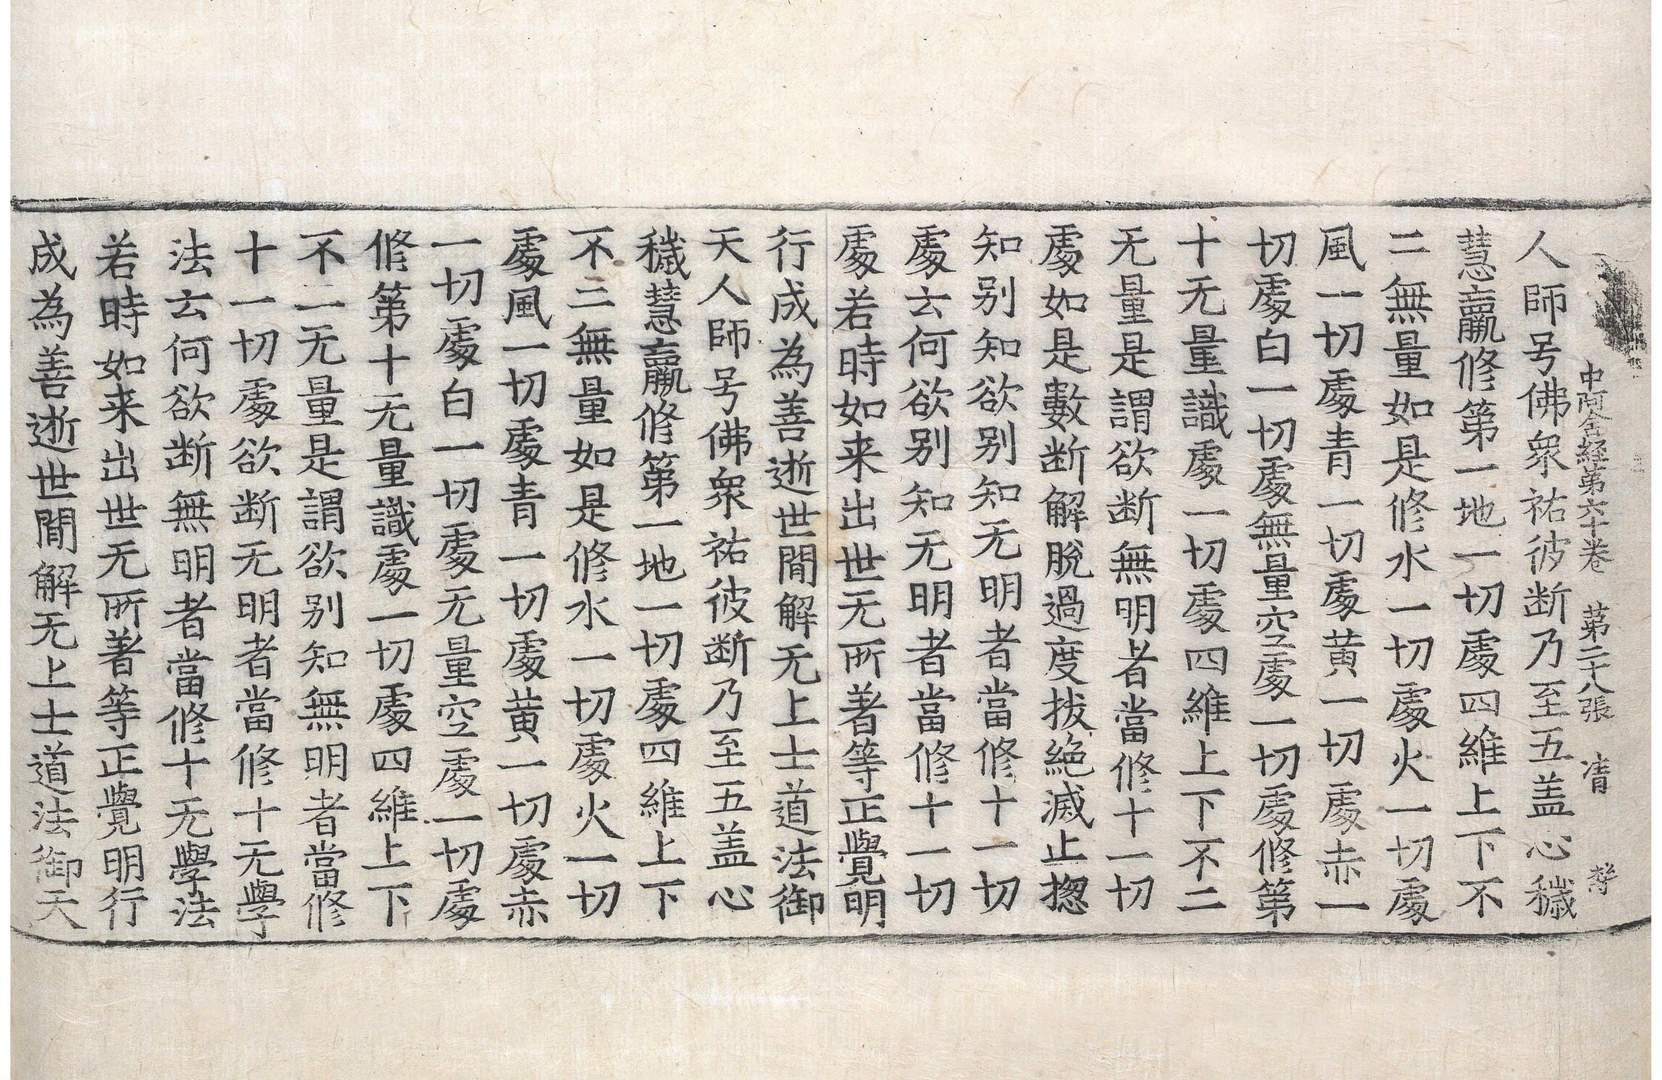 中阿含經第六十卷 第二十八張 凊
人師号佛衆祐彼断乃至五盖心穢
慧羸修第一地一切處四維上下不
二無量如是修水一切處火一切處
風一切處青一切處黄一切處赤一
切處白一切處無量空處一切處修第
十无量識處一切處四維上下不二
无量是謂欲断無明者當修十一切
處如是數断解脫過度拔絶滅止揔
知别知欲别知无明者當修十一切
處云何欲别知无明者當修十一切
處若時如来出世无所著等正覺明
行成為善逝世間解无上士道法御
天人師号佛衆祐彼断乃至五盖心
穢慧羸修第一地一切處四維上下
不二無量如是修水一切處火一切
處風一切處青一切處黄一切處赤
一切處白一切處无量空處一切處
修第十无量識處一切處四維上下
不二无量是謂欲别知無明者當修
十一切處欲断无明者當修十无學
法云何欲断無明者當修十无學法
若時如来出世无所著等正覺明行
成為善逝世間解无上士道法御天